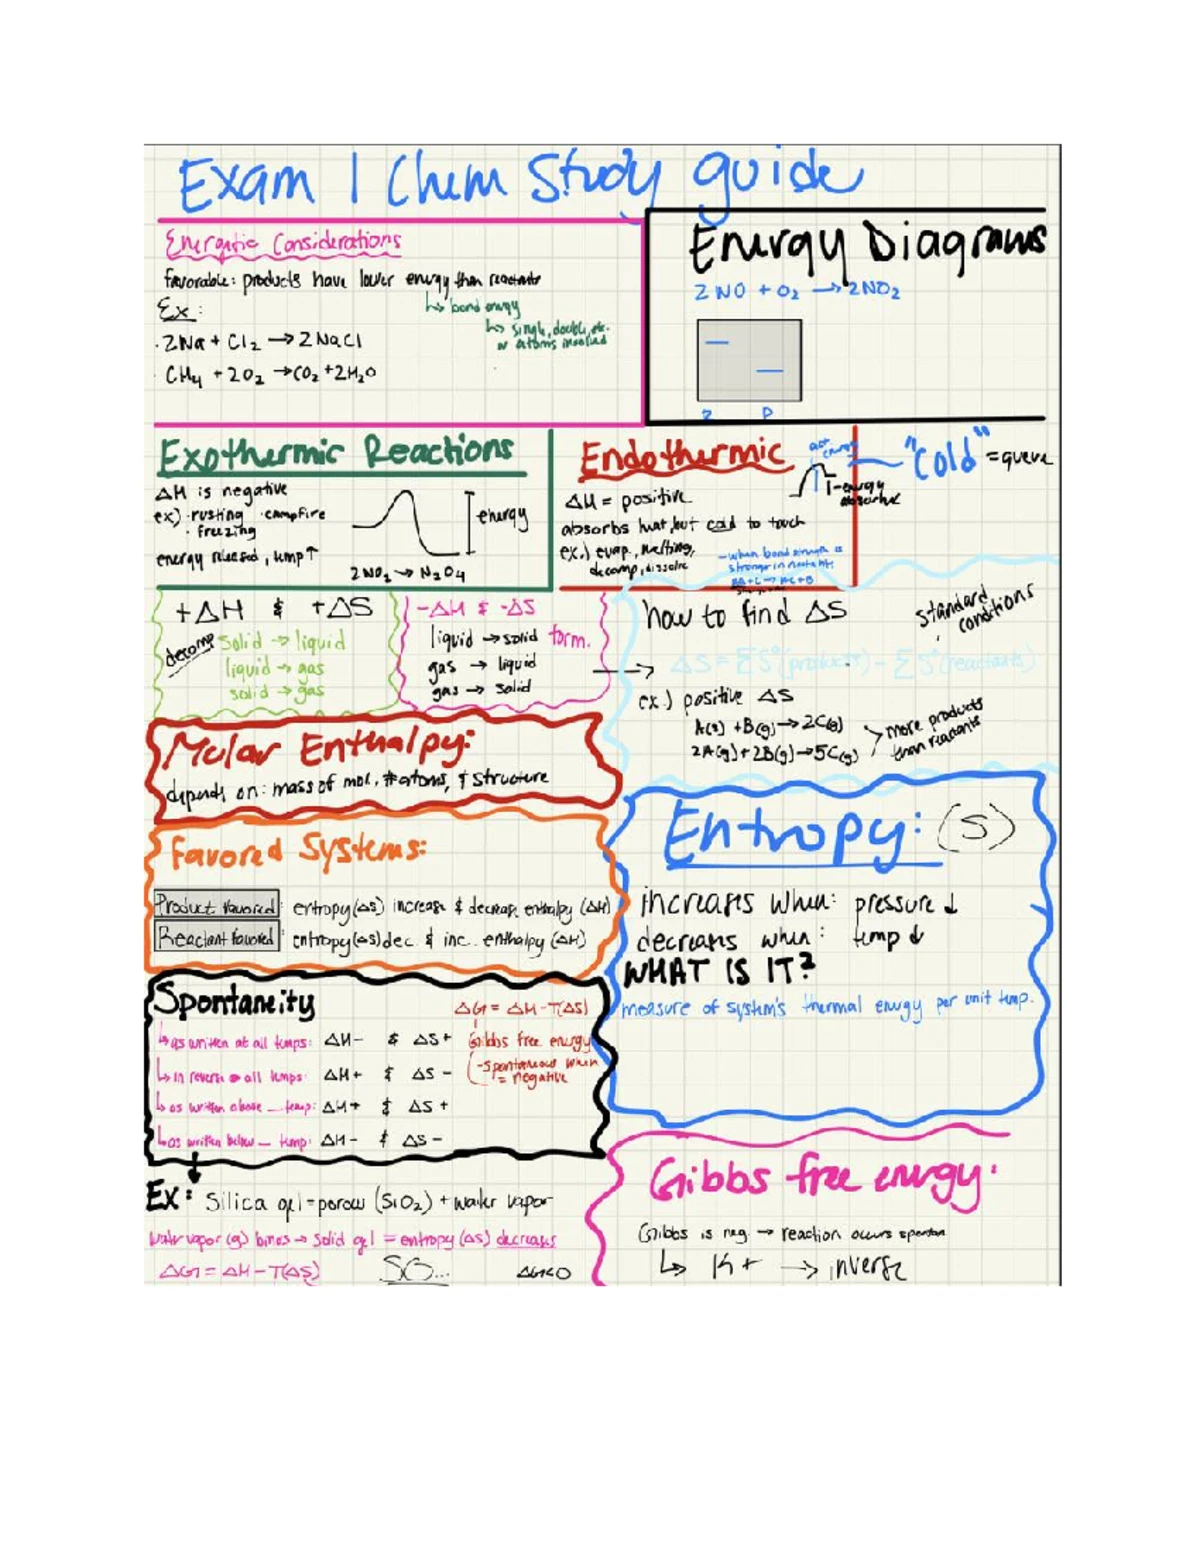 Exam 1 Chem Study guide
Energetic Considerations
favorable: products have lower energy than reactants
↳ bond energy
↳ single, double, etc.
or atoms involved
Ex:
· 2Na + Cl₂ → 2NaCl
· CH₄ + 2O₂ → CO₂ + 2H₂O
Energy Diagrams
2NO + O₂ → 2NO₂
R P
Exothermic Reactions
ΔH is negative
ex) · rusting · campfire
· freezing
energy released, temp ↑
energy
2NO₂ → N₂O₄
Endothermic
act energy
"cold" = queue
ΔH = positive
energy absorbed
absorbs heat, but cold to touch
ex.) evap., melting,
decomp, dissolve
- when bond strength is
stronger in reactants
AB + C → AC + B
+ΔH & +ΔS
decomp
solid → liquid
liquid → gas
solid → gas
-ΔH & -ΔS
liquid → solid form.
gas → liquid
gas → solid
how to find ΔS
standard conditions
ΔS = ΣS°(products) - ΣS°(reactants)
ex.) positive ΔS
A(g) + B(g) → 2C(g)
2A(g) + 2B(g) → 5C(g)
more products
than reactants
Molar Enthalpy:
depends on: mass of mol., # atoms, & structure
Favored Systems:
Product favored: entropy (ΔS) increase & decrease enthalpy (ΔH)
Reactant favored: entropy (ΔS) dec. & inc. enthalpy (ΔH)
Entropy: (S)
increases when: pressure ↓
decreases when: temp ↓
WHAT IS IT?
measure of system's thermal energy per unit temp.
Spontaneity
ΔG = ΔH - T(ΔS)
Gibbs free energy
- spontaneous when
= negative
↳ as written at all temps: ΔH - & ΔS +
↳ in reverse @ all temps: ΔH + & ΔS -
↳ as written above _ temp: ΔH + & ΔS +
↳ as written below _ temp: ΔH - & ΔS -
Ex: Silica gel = porous (SiO₂) + water vapor
water vapor (g) binds → solid gel = entropy (ΔS) decreases
ΔG = ΔH - T(ΔS) SO... ΔG<0
Gibbs free energy:
Gibbs is neg. → reaction occurs spontan
↳ K + → inverse